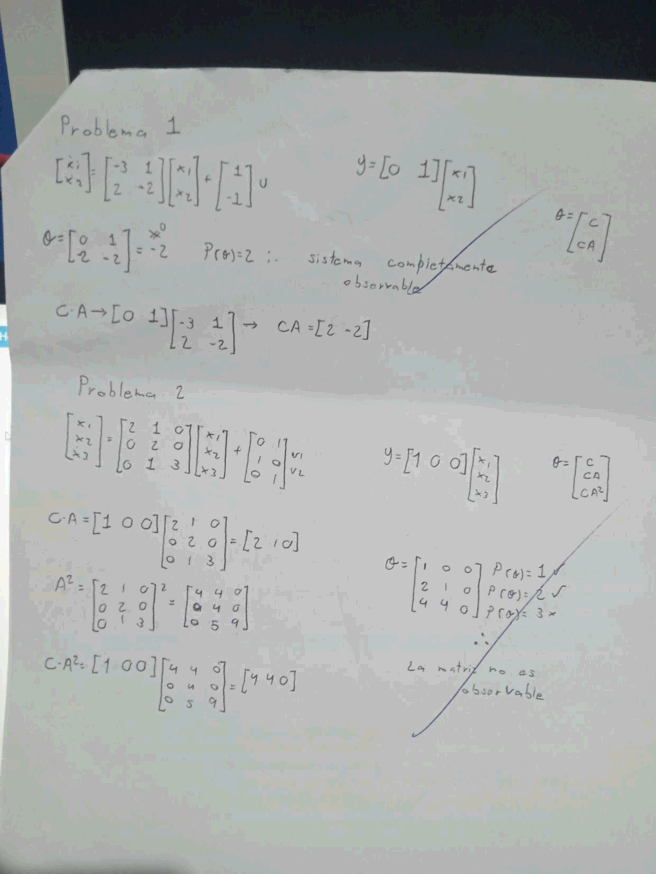 Problema 1
[ẋ1 ẋ2] = [-3 1; 2 -2] [x1 x2] + [1; -1] U
y = [0 1] [x1 x2]
θ = [C; CA]
θ = [0 1; 2 -2] = -2 P(θ)=2 ∴ sistema completamente
observable
C·A → [0 1] [-3 1; 2 -2] → CA = [2 -2]
Problema 2
[ẋ1 ẋ2 ẋ3] = [2 1 0; 0 2 0; 0 1 3] [x1 x2 x3] + [0 1; 1 0; 0 1] U1 U2
y = [1 0 0] [x1 x2 x3]
θ = [C; CA; CA²]
C·A = [1 0 0] [2 1 0; 0 2 0; 0 1 3] = [2 1 0]
A² = [2 1 0; 0 2 0; 0 1 3]² = [4 4 0; 0 4 0; 0 5 9]
C·A² = [1 0 0] [4 4 0; 0 4 0; 0 5 9] = [4 4 0]
θ = [1 0 0; 2 1 0; 4 4 0]
P(θ)=1 ✓
P(θ)=2 ✓
P(θ)=3 ×
∴
La matriz no es
observable